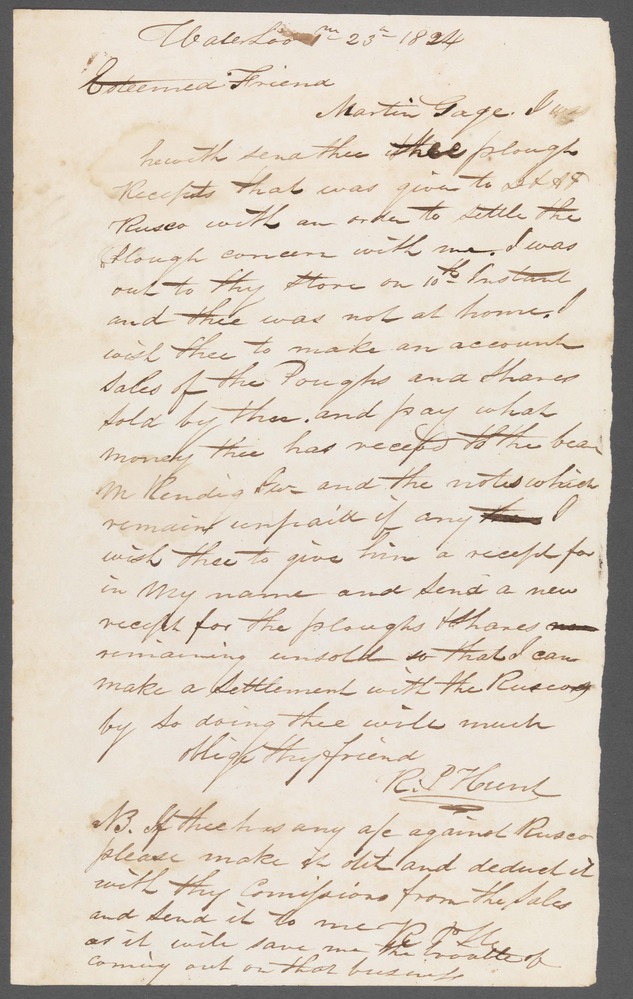 Waterloo 23d 1824
Esteemed Friend
Martin Gage. I
hewith send thee thee plough
Recepts that was given to
Rusco with an order to settle the
Plough concern with me. I was
out to thy Store on 10th Instant
and thee was not at home. I
wish thee to make an account
Sales of the Poughs and Shares
Sold by thee. and pay what
money thee has recept to the bear
M Kendig Jur and the notes which
remain unpaid if any I
wish thee to give him a recept for
in My name and Send a new
recept for the ploughs & Shares
remaining unsold so that I can
make a Settlement with the Ruscos
by So doing thee will much
oblige thy friend
R. P Hunt
NB. If thee has any a/c against Rusco
please make it out and deduct it
with thy Comissions from the Sales
and Send it to me R P H
as it will save me the trouble of
coming out on that business